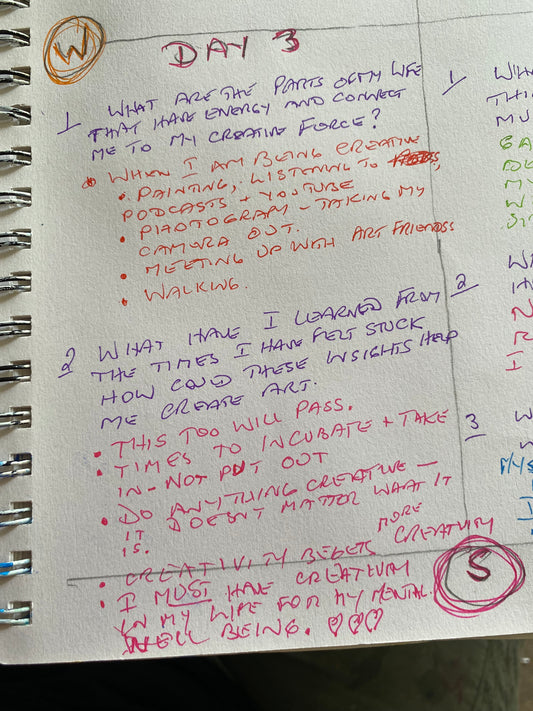 W
DAY 3
1 WHAT ARE THE PARTS OF MY LIFE
THAT HAVE ENERGY AND CONNECT
ME TO MY CREATIVE FORCE?
• WHEN I AM BEING CREATIVE
• PAINTING, LISTENING TO
PODCASTS + YOUTUBE
• PHOTOGRAPHY - TAKING MY
CAMERA OUT.
• MEETING UP WITH ART FRIENDS
• WALKING.
2 WHAT HAVE I LEARNED FROM
THE TIMES I HAVE FELT STUCK
HOW COULD THESE INSIGHTS HELP
ME CREATE ART.
• THIS TOO WILL PASS.
• TIMES TO INCUBATE + TAKE
IN - NOT PUT OUT
• DO ANYTHING CREATIVE -
IT DOESNT MATTER WHAT IT
IS.
• CREATIVITY BEGETS MORE CREATIVITY
• I MUST HAVE CREATIVITY
IN MY LIFE FOR MY MENTAL
WELL BEING.
1
2
I
3
S